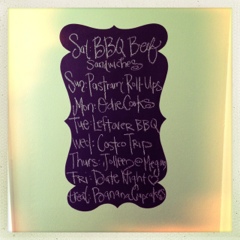 Sat: BBQ Beef
Sandwiches
Sun: Pastrami Roll-Ups
Mon: Cooks
Tue: Leftover BBQ
Wed: Costco Trip
Thurs: @ Megan
Fri: Date Night
Treat: Banana Cupcakes